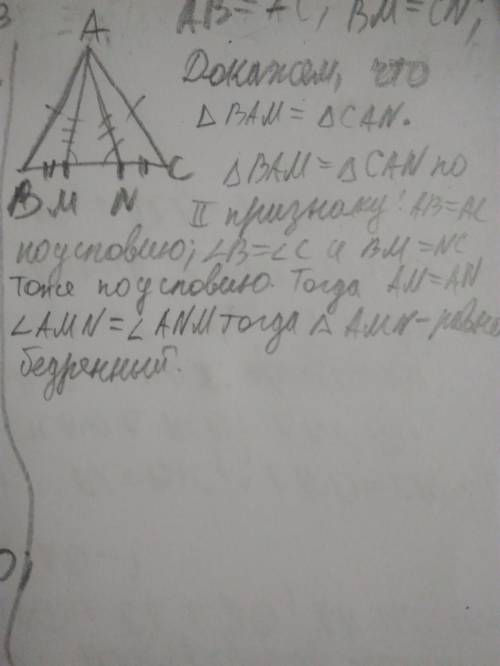 AB = AC, BM = CN,
A
Докажем, что
△BAM = △CAN.
B M N C
△BAM = △CAN по
II признаку: AB=AC
по условию; ∠B=∠C и BM=NC
тоже по условию. Тогда AM=AN
∠AMN=∠ANM тогда △AMN-равно
бедренный.